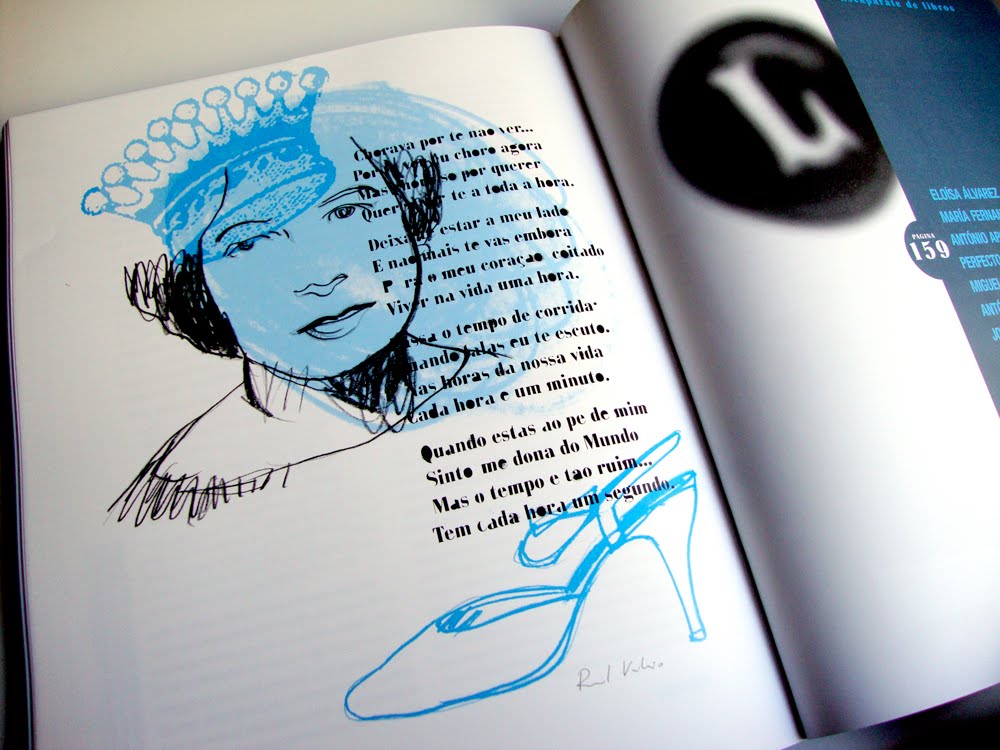 Chorava por te nao ver...
Por choro agora
so por querer
te a toda a hora.
Deixa estar a meu lado
E nao mais te vas embora
o meu coração coitado
Viver na vida uma hora.
o tempo de corrida
falas eu te escuto.
horas da nossa vida
Cada hora e um minuto.
Quando estas ao pe de mim
Sinto me dona do Mundo
Mas o tempo e tao ruim...
Tem cada hora um segundo.
L
escaparate de libros
ELOÍSA ÁLVAREZ
MARÍA
ANTÓNIO
PERFECTO
PÁGINA
159